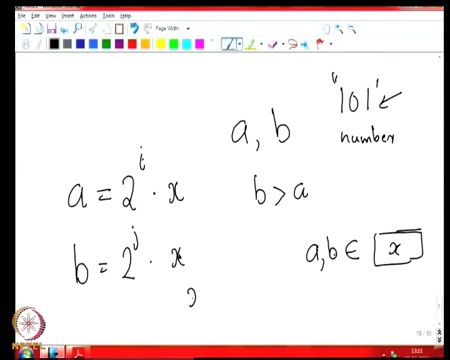 File Edit View Insert Actions Tools Help
Page Width
"101"
a, b
number
a = 2^i · x
b > a
b = 2^j · x
a, b ∈ x